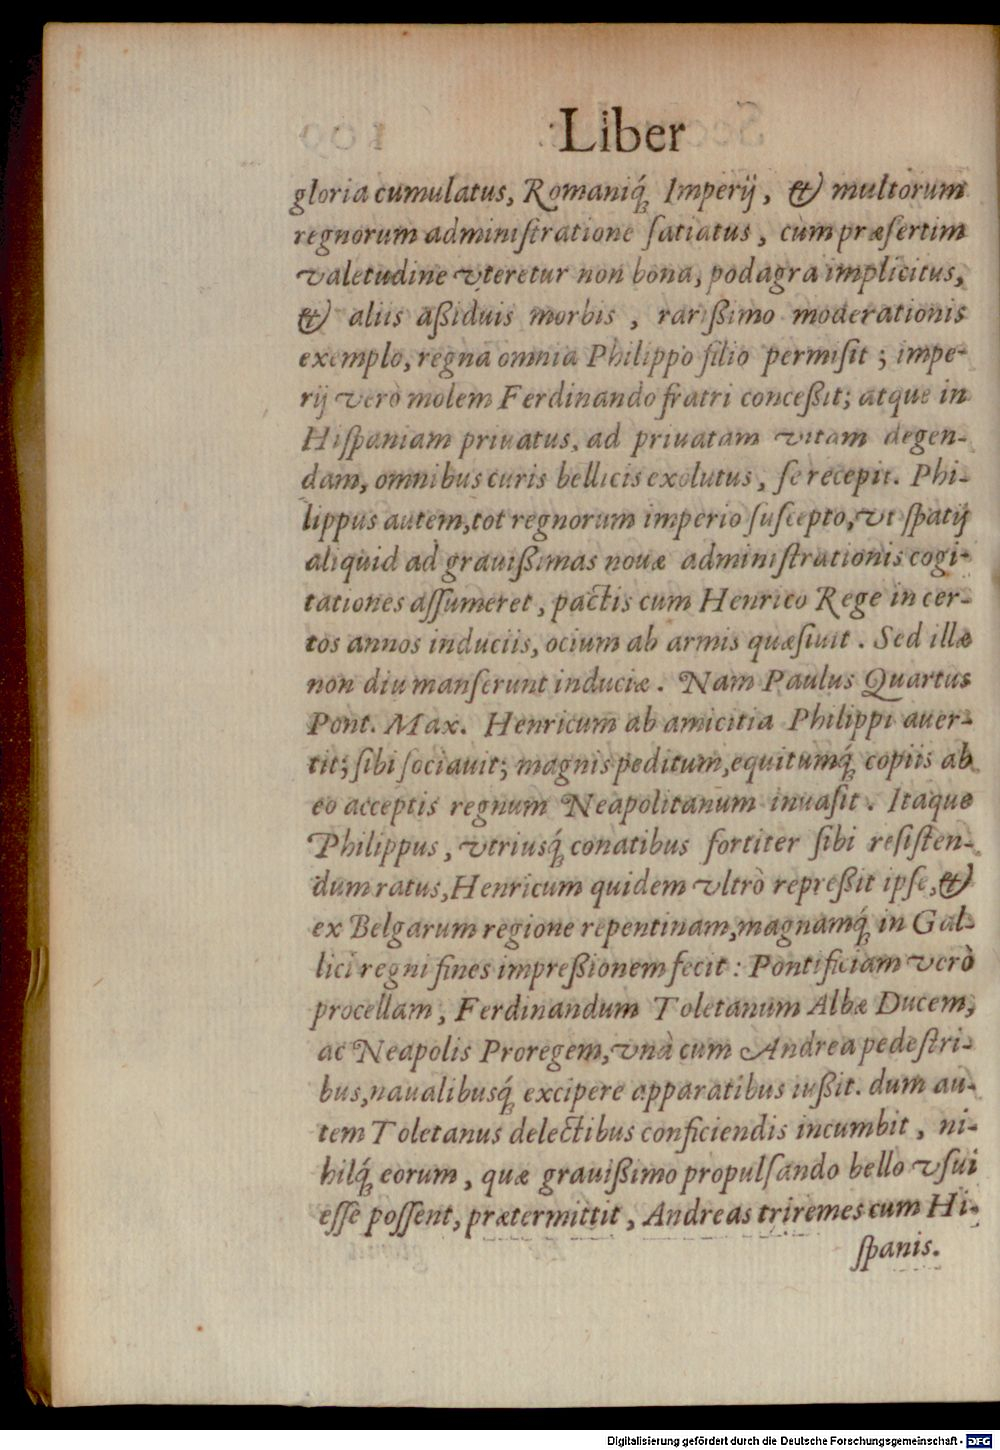 Liber
gloria cumulatus, Romaniq́ꝫ Imperij, & multorum
regnorum adminiſtratione ſatiatus, cùm præſertim
valetudine vteretur non bona, podagra implicitus,
& aliis aßiduis morbis, rarißimo moderationis
exemplo, regna omnia Philippo filio permiſit; impe-
rij verò molem Ferdinando fratri conceßit; atque in
Hiſpaniam priuatus, ad priuatam vitam degen-
dam, omnibus curis bellicis exolutus, ſe recepit. Phi-
lippus autem, tot regnorum imperio ſuſcepto, vt ſpatij
aliquid ad grauißimas nouæ adminiſtrationis cogi-
tationes aſſumeret, pactis cum Henrico Rege in cer-
tos annos induciis, ocium ab armis quæſiuit. Sed illæ
non diu manſerunt induciæ. Nam Paulus Quartus
Pont. Max. Henricum ab amicitia Philippi auer-
tit; ſibi ſociauit; magnis peditum, equitumq́ꝫ copiis ab
eo acceptis regnum Neapolitanum inuaſit. Itaque
Philippus, vtriusq́ꝫ conatibus fortiter ſibi reſiſten-
dum ratus, Henricum quidem vltrò repreßit ipſe, &
ex Belgarum regione repentinam, magnamq́ꝫ in Gal-
lici regni fines impreßionem fecit: Pontificiam verò
procellam, Ferdinandum Toletanum Albæ Ducem,
ac Neapolis Proregem, vnà cum Andrea pedeſtri-
bus, naualibusq́ꝫ excipere apparatibus iußit. dum au-
tem Toletanus delectibus conficiendis incumbit, ni-
hilq́ꝫ eorum, quæ grauißimo propulſando bello vſui
eſſe poſſent, prætermittit, Andreas triremes cum Hi-
ſpanis.
Digitalisierung gefördert durch die Deutsche Forschungsgemeinschaft - DFG